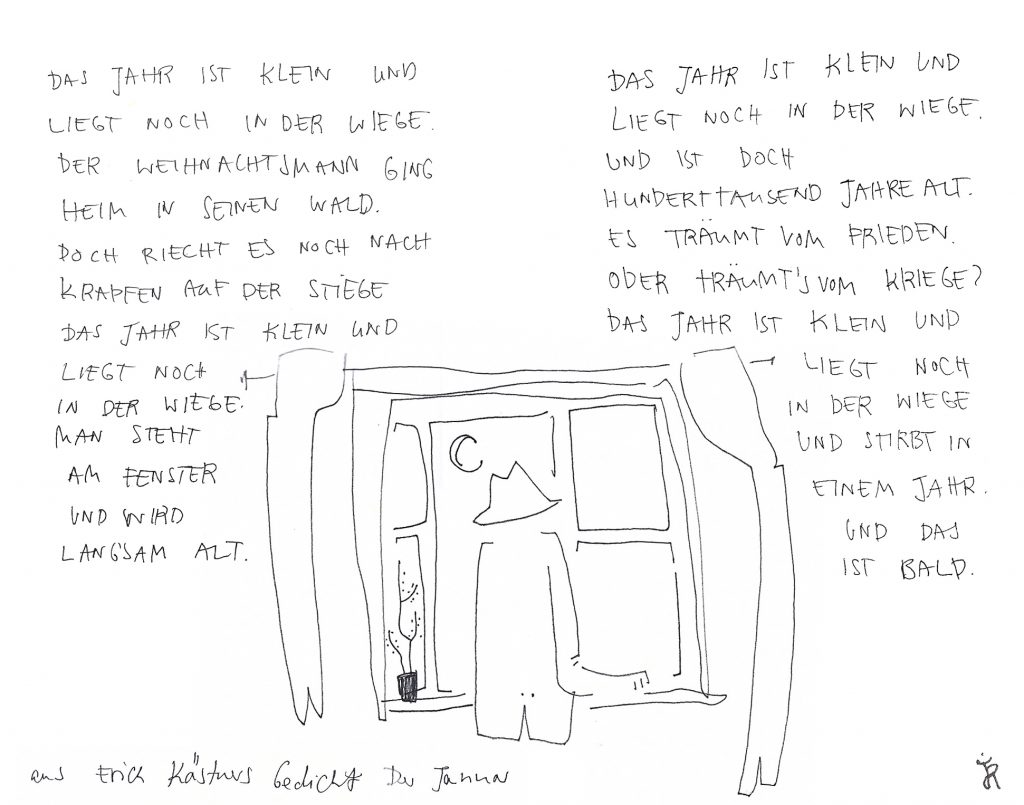 DAS JAHR IST KLEIN UND
LIEGT NOCH IN DER WIEGE.
DER WEIHNACHTSMANN GING
HEIM IN SEINEN WALD.
DOCH RIECHT ES NOCH NACH
KRAPFEN AUF DER STIEGE
DAS JAHR IST KLEIN UND
LIEGT NOCH
IN DER WIEGE.
MAN STEHT
AM FENSTER
UND WIRD
LANGSAM ALT.
DAS JAHR IST KLEIN UND
LIEGT NOCH IN DER WIEGE.
UND IST DOCH
HUNDERTTAUSEND JAHRE ALT.
ES TRÄUMT VOM FRIEDEN.
ODER TRÄUMT'S VOM KRIEGE?
DAS JAHR IST KLEIN UND
LIEGT NOCH
IN DER WIEGE
UND STIRBT IN
EINEM JAHR.
UND DAS
IST BALD.
aus Erich Kästners Gedicht Der Januar